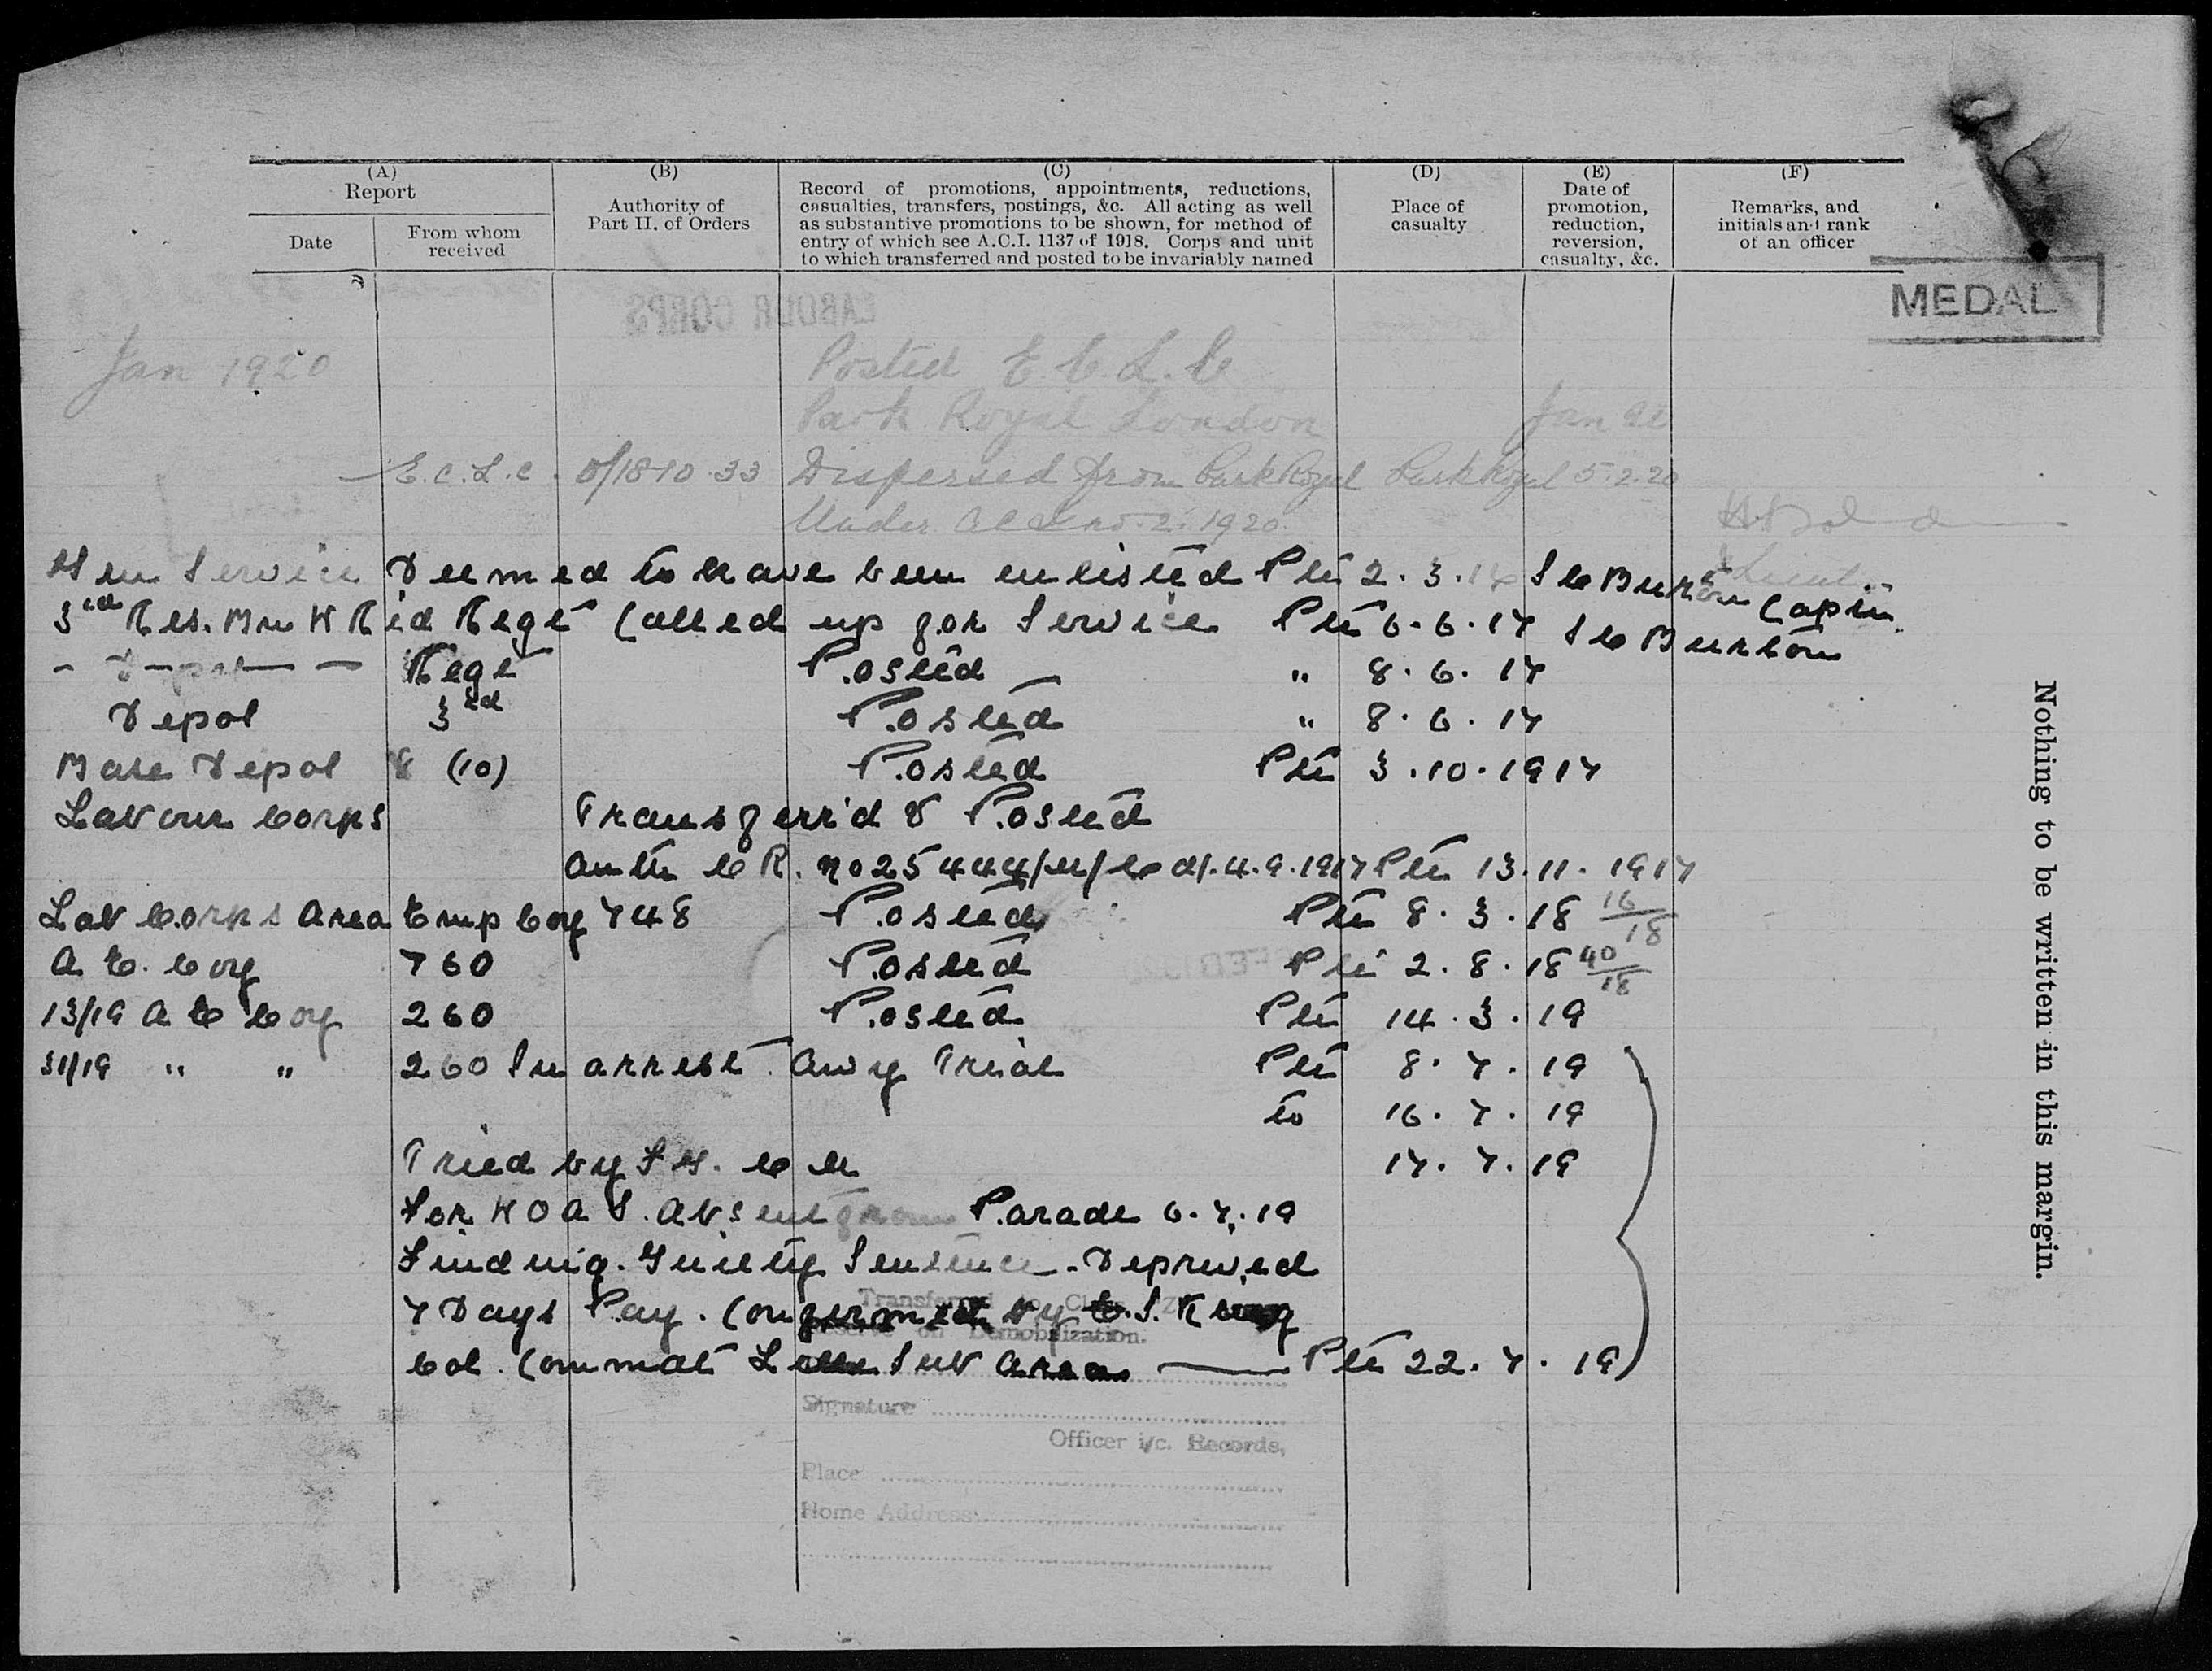 (A)
Report
Date
From whom
received
(B)
Authority of
Part II. of Orders
(C)
Record of promotions, appointments, reductions,
casualties, transfers, postings, &c. All acting as well
as substantive promotions to be shown, for method of
entry of which see A.C.I. 1137 of 1918. Corps and unit
to which transferred and posted to be invariably named
(D)
Place of
casualty
(E)
Date of
promotion,
reduction,
reversion,
casualty, &c.
(F)
Remarks, and
initials and rank
of an officer
MEDAL
LABOUR CORPS
Jan 1920 Posted E.C.L.C
Park Royal London Jan 20
E.C.L.C. 0/1810.33 Dispersed from Park Royal Park Royal 5.2.20
Under no. 2. 1920.
Gen Service Deemed to have been enlisted Pte 2.3.17 S C Burton Captn
Lieut.
3rd Res. Bn W Rid Regt Called up for Service Pte 6.6.17 S C Burton
- Depot - Regt Posted " 8.6.17
Depot 3rd Posted " 8.6.17
Base Depot 8 (10) Posted Pte 3.10.1917
Labour Corps Transferr'd & Posted
Auth C R. No 25444/ d/. 4.9.1917 Pte 13.11.1917
Lab Corps Area Emp Coy 748 Posted Pte 8.3.18 16/18
A E. Coy 760 Posted Pte 2.8.18 40/18
13/19 A E Coy 260 Posted Pte 14.3.19
31/19 " " 260 In arrest Awg Trial Pte 8.7.19
to 16.7.19
Tried by F G. C M 17.7.19
For W O A S. Absent from Parade 6.7.19
Finding. Guilty Sentence - Deprived
7 Days Pay. Confirmed by C.S. King
Col. Commdt Sub Area — Pte 22.7.19
Transferred to Class Z
on Demobilization.
Signature
Officer i/c. Records,
Place
Home Address
Nothing to be written in this margin.